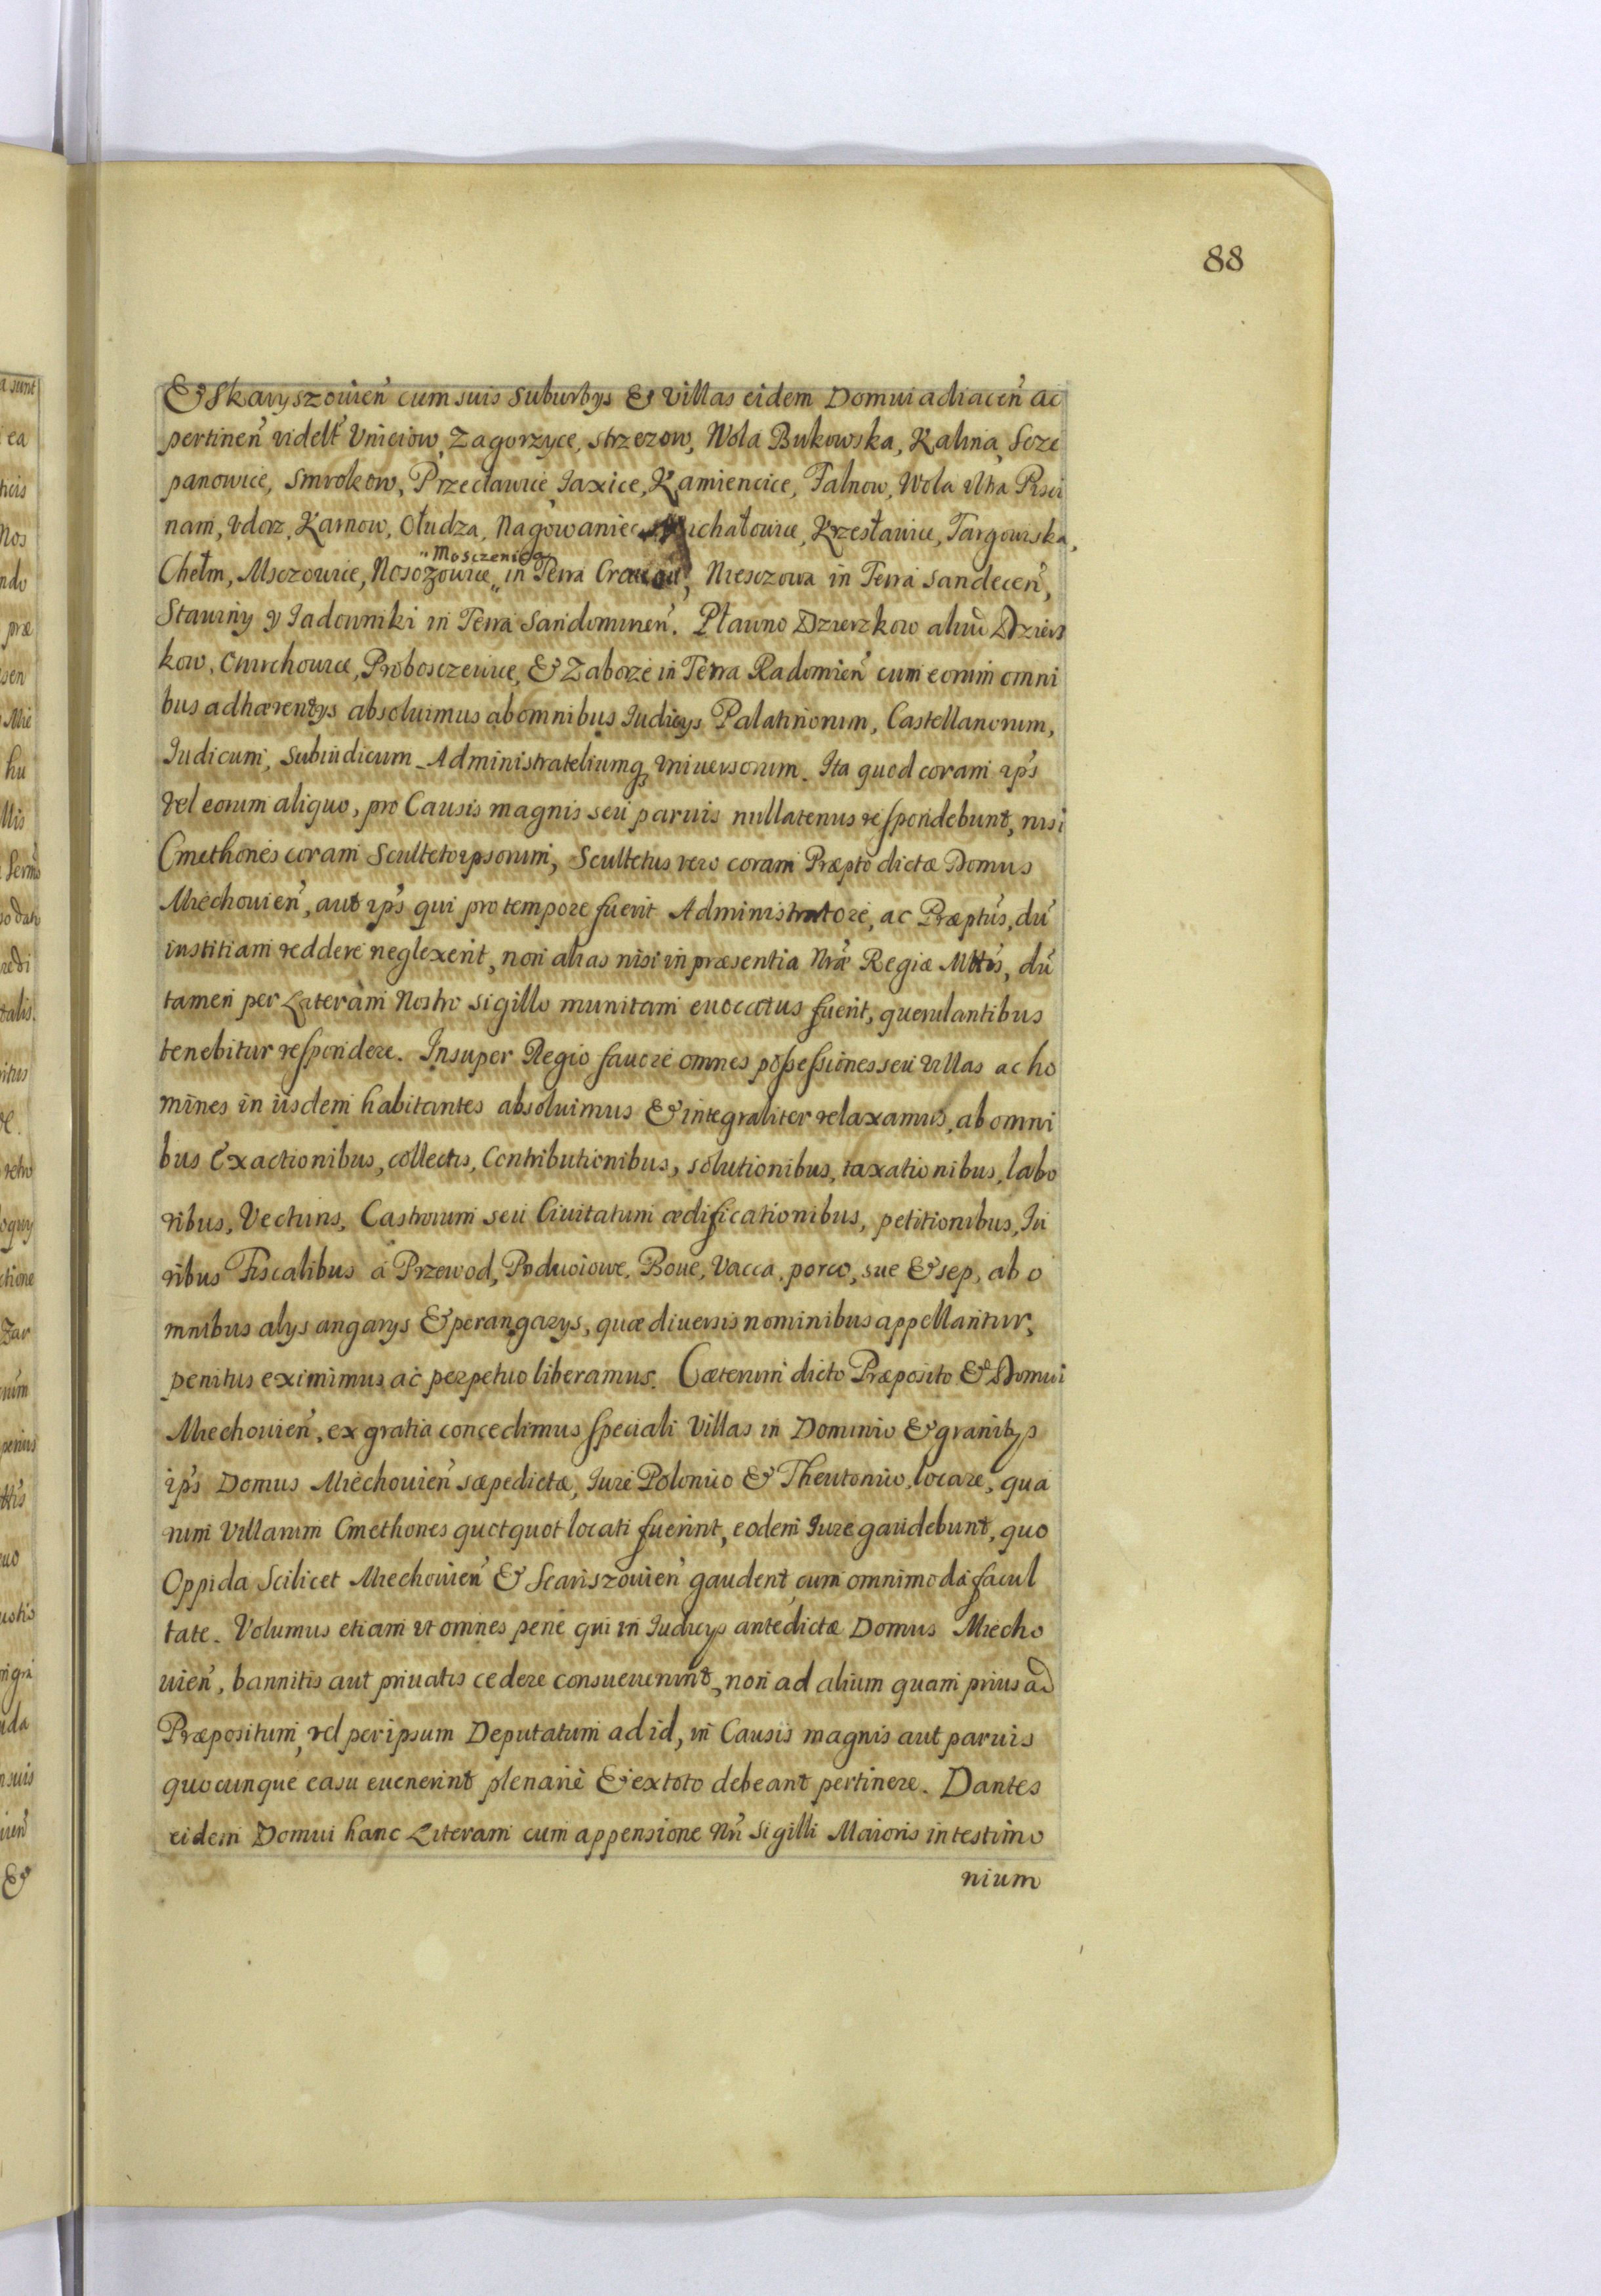 88
& Skaryszouień cum suis suburbys & Villas eidem Domui adiaceń ac
pertineń videlt Vniciow, Zagorzyce, strzezow, Wola Bukowska, Kalina, Scze
panowice, Smrokow, Przecławice, Iaxice, Kamiencice, Falnow, Wola Vltra Pisci
nam, Vdorz, Karnow, Ołudza, Nagowaniec Michałowice, Krzesławice, Targowiska,
"Mosczenica
Chełm, Msczowice, Nosozowice, in Terra Cracou, Niesczowa in Terra Sandeceń,
Stawiny y Iadowniki in Terra Sandomirień. Pławno Dzierzkow aliud Dzierz
kow, Omichowice, Proboszczewice, & Zaborze in Terra Radomień cum eorum omni
bus adhærentys absoluimus ab omnibus Iudicys Palatinorum, Castellanorum,
Iudicum, Subiudicum Administrateliumq Vniuersorum. Ita quod coram ips
vel eorum aliquo, pro Causis magnis seu paruis nullatenus respondebunt, nisi
Cmethones coram Sculteto ipsorum, Scultetus vero coram Præpto dictæ Domus
Miechouień, aut ips qui pro tempore fuerit Administratore, ac Præptus, du
iustitiam reddere neglexerit, non alias nisi in præsentia Nræ Regiæ Mttis, du
tamen per Literam Nostro sigillo munitam euocatus fuerit, querulantibus
tenebitur respondere. Insuper Regio fauore omnes possessiones seu Villas ac ho
mines in iisdem habitantes absoluimus & integraliter relaxamus, ab omni
bus exactionibus, collectis, Contributionibus, solutionibus, taxationibus, labo
ribus, Vecturis, Castrorum seu Ciuitatum ædificationibus, petitionibus, Iu
ribus Fiscalibus à Przewod, Poduoiowe, Boue, Vacca, porco, sue & sep, ab o
mnibus alys angarys & perangarys, quæ diuersis nominibus appellantur,
penitus eximimus ac perpetuo liberamus. Cæterum dicto Præposito & Domui
Miechouień, ex gratia concedimus speciali Villas in Dominio & granitys
ips Domus Miechouień sæpedictæ, Iure Polonico & Theutonico, locare, qua
rum Villarum Cmethones quotquot locati fuerint, eodem Iure gaudebunt, quo
Oppida Scilicet Miechouień & Scariszouień gaudent, cum omnimoda facul
tate. Volumus etiam vt omnes penè qui in Iudicys antedictæ Domus Miecho
uień, bannitis aut priuatis cedere consueuerunt, non ad alium quam prius ad
Præpositum, vel per ipsum Deputatum ad id, in Causis magnis aut paruis
quocunque casu euenerint plenariè & ex toto debeant pertinere. Dantes
eidem Domui hanc Literam cum appensione Nri Sigilli Maioris in testimo
nium